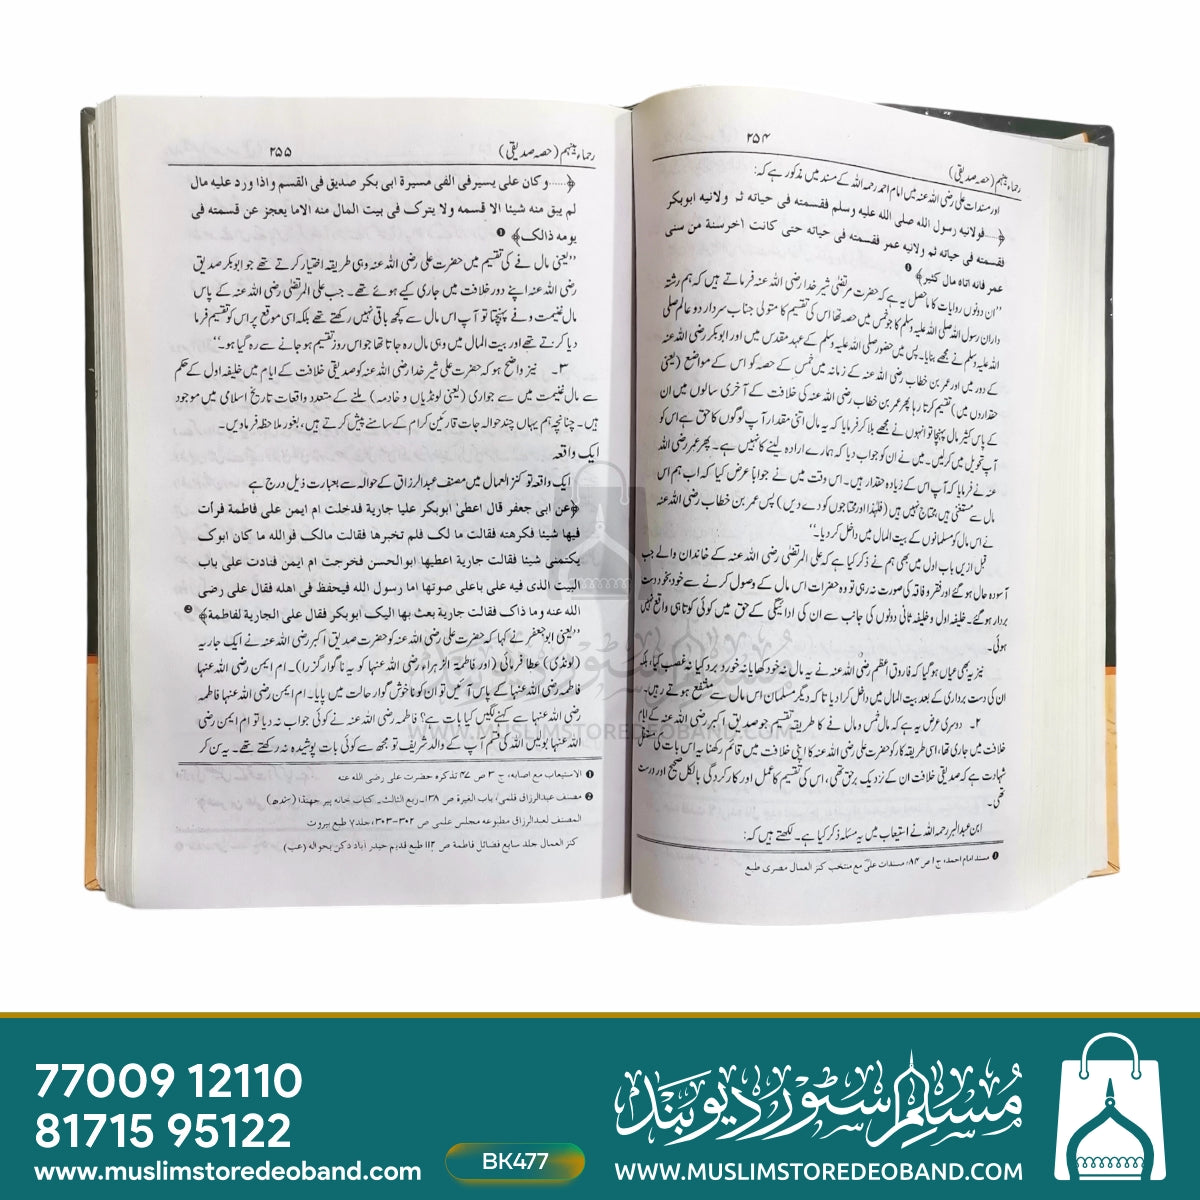 ۲۵۴
رحماء بینہم (حصہ صدیقی)
اور مسندات علی رضی اللہ عنہ میں امام احمد رحمہ اللہ کے مسند میں مذکور ہے کہ:
﴿....فولانیه رسول الله صلی الله علیه وسلم فقسمته فی حیاته ثم ولانیه ابوبکر
فقسمته فی حیاته ثم ولانیه عمر فقسمته فی حیاته حتی کانت آخر سنة من سنی
عمر فانه اتاه مال کثیر﴾ ❶
”ان دونوں روایات کا ماحصل یہ ہے کہ حضرت مرتضیٰ شیر خدا رضی اللہ عنہ فرماتے ہیں کہ ہم رشتہ
داران رسول اللہ صلی اللہ علیہ وسلم کا جو خمس میں حصہ تھا اس کی تقسیم کا متولی جناب سردار دو عالم صلی
اللہ علیہ وسلم نے مجھے بنایا۔ پس میں حضور صلی اللہ علیہ وسلم کے عہد مقدس میں اور ابوبکر رضی اللہ عنہ
کے دور میں اور عمر بن خطاب رضی اللہ عنہ کے زمانہ میں خمس کے حصہ کو اس کے مواضع (یعنی
حقداروں میں) تقسیم کرتا رہا پھر عمر بن خطاب رضی اللہ عنہ کی خلافت کے آخری سالوں میں ان
کے پاس کثیر مال پہنچا تو انہوں نے مجھے بلا کر فرمایا کہ یہ مال اتنی مقدار آپ لوگوں کا حق ہے اس کو
آپ تحویل میں کر لیں۔ میں نے ان کو جواب دیا کہ ہمارے ارادہ لینے کا نہیں ہے۔ پھر عمر رضی اللہ
عنہ نے فرمایا کہ آپ اس کے زیادہ حقدار ہیں۔ اس وقت میں نے جواباً عرض کیا کہ اب ہم اس
مال سے مستغنی ہیں محتاج نہیں ہیں (فلہٰذا اور محتاجوں کو دے دیں) پس عمر بن خطاب رضی اللہ عنہ
نے اس مال کو مسلمانوں کے بیت المال میں داخل کر دیا۔“
قبل ازیں باب اول میں بھی ہم نے ذکر کیا ہے کہ علی المرتضیٰ رضی اللہ عنہ کے خاندان والے جب
آسودہ حال ہو گئے اور فقر و فاقہ کی صورت نہ رہی تو وہ حضرات اس مال کے وصول کرنے سے خود بخود دست
بردار ہو گئے۔ خلیفہ اول و خلیفہ ثانی دونوں کی جانب سے ان کی ادائیگی کے حق میں کوئی کوتاہی واقع نہیں
ہوئی۔
نیز یہ بھی عیاں ہو گیا کہ فاروق اعظم رضی اللہ عنہ نے یہ مال نہ خود کھایا نہ خورد برد کیا نہ غصب کیا، بلکہ
ان کی دست برداری کے بعد بیت المال میں داخل کر دیا تا کہ دیگر مسلمان اس مال سے منتفع ہوتے رہیں۔
۲۔ دوسری عرض یہ ہے کہ مال خمس و مال فے کا طریقہ تقسیم جو صدیق اکبر رضی اللہ عنہ کے ایام
خلافت میں جاری تھا، اسی طریقہ کار کو حضرت علی رضی اللہ عنہ کا اپنی خلافت میں قائم رکھنا یہ اس بات کی مستقل
شہادت ہے کہ صدیقی خلافت ان کے نزدیک برحق تھی، اس کی تقسیم کا عمل اور کارکردگی بالکل صحیح اور درست
تھی۔
ابن عبدالبر رحمہ اللہ نے استیعاب میں یہ مسئلہ ذکر کیا ہے۔ لکھتے ہیں کہ:
❶ مسند امام احمد، ج ۱ ص ۸۴، مسندات علیؓ مع منتخب کنز العمال مصری طبع
۲۵۵
رحماء بینہم (حصہ صدیقی)
﴿.....و کان علی یسیر فی الفی مسیرة ابی بکر صدیق فی القسم واذا ورد علیه مال
لم یبق منه شیئا الا قسمه ولا یترک فی بیت المال منه الاما یعجز عن قسمته فی
یومه ذالک﴾ ❶
”یعنی مال فے کی تقسیم میں حضرت علی رضی اللہ عنہ وہی طریقہ اختیار کرتے تھے جو ابوبکر صدیق
رضی اللہ عنہ اپنے دور خلافت میں جاری کیے ہوئے تھے۔ جب علی المرتضیٰ رضی اللہ عنہ کے پاس
مال غنیمت و فے پہنچتا تو آپ اس مال سے کچھ باقی نہیں رکھتے تھے بلکہ اسی موقع پر اس کو تقسیم فرما
دیا کرتے تھے اور بیت المال میں وہی مال رہ جاتا تھا جو اس روز تقسیم ہو جانے سے رہ گیا ہو۔“
۳۔ نیز واضح ہو کہ حضرت علی شیر خدا رضی اللہ عنہ کو صدیقی خلافت کے ایام میں خلیفہ اول کے حکم
سے مال غنیمت میں سے جواری (یعنی لونڈیاں و خادمہ) ملنے کے متعدد واقعات تاریخ اسلامی میں موجود
ہیں۔ چنانچہ ہم یہاں چند حوالہ جات قارئین کرام کے سامنے پیش کرتے ہیں، بغور ملاحظہ فرمادیں۔
ایک واقعہ
ایک واقعہ تو کنز العمال میں مصنف عبدالرزاق کے حوالہ سے بعبارت ذیل درج ہے
﴿عن ابی جعفر قال اعطی ابوبکر علیا جاریة فدخلت ام ایمن علی فاطمة فرأت
فیها شیئا فکرهته فقالت ما لک فلم تخبرها فقالت مالک فوالله ما کان ابوک
یکتمنی شیئا فقالت جاریة اعطیها ابوالحسن فخرجت ام ایمن فنادت علی باب
البیت الذی فیه علی باعلی صوتها اما رسول الله فیحفظ فی اهله فقال علی رضی
الله عنه وما ذاک فقالت جاریة بعث بها الیک ابوبکر فقال علی الجاریة لفاطمة﴾ ❷
”یعنی ابوجعفر نے کہا کہ حضرت علی رضی اللہ عنہ کو حضرت صدیق اکبر رضی اللہ عنہ نے ایک جاریہ
(لونڈی) عطا فرمائی (اور فاطمۃ الزہراء رضی اللہ عنہا کو یہ ناگوار گزرا)۔ ام ایمن رضی اللہ عنہا
فاطمہ رضی اللہ عنہا کے پاس آئیں تو ان کو ناخوش گوار حالت میں پایا۔ ام ایمن رضی اللہ عنہا فاطمہ
رضی اللہ عنہا سے کہنے لگیں کیا بات ہے؟ فاطمہ رضی اللہ عنہ نے کوئی جواب نہ دیا تو ام ایمن رضی
اللہ عنہا بولیں اللہ کی قسم آپ کے والد شریف تو مجھ سے کوئی بات پوشیدہ نہ رکھتے تھے۔ یہ سن کر
❶ الاستیعاب مع اصابه، ج ۳ ص ۴۷ تذکره حضرت علی رضی الله عنه
❷ مصنف عبدالرزاق قلمی، باب الغیرة ص ۱۳۸۔ ربع الثالث۔ کتاب خانه پیر جهنڈا (سندھ)
المصنف لعبدالرزاق مطبوعه مجلس علمی ص ۳۰۲-۳۰۳، جلد ۷ طبع بیروت
کنز العمال جلد سابع فضائل فاطمة ص ۱۱۲ طبع قدیم حیدر آباد دکن بحواله (عب)
مسلم سٹور دیوبند
WWW.MUSLIMSTOREDEOBAND.COM
77009 12110
81715 95122
www.muslimstoredeoband.com
BK477
مسلم سٹور دیوبند
WWW.MUSLIMSTOREDEOBAND.COM